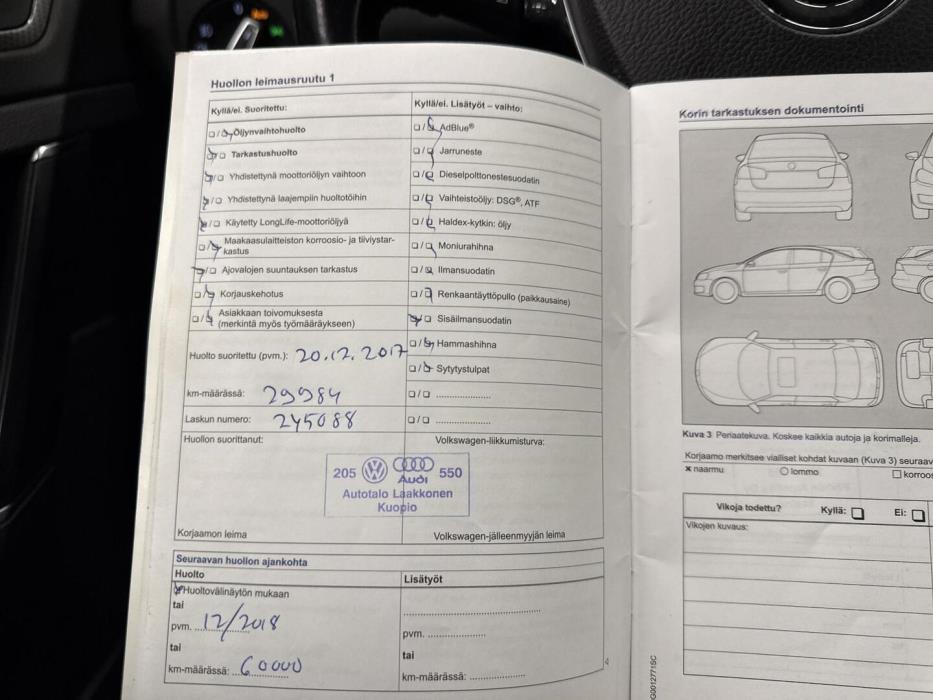 Huollon leimausruutu 1
Kyllä/ei. Suoritettu:
☐/☒ Öljynvaihtohuolto
☒/☐ Tarkastushuolto
☒/☐ Yhdistettynä moottoriöljyn vaihtoon
☒/☐ Yhdistettynä laajempiin huoltotöihin
☒/☐ Käytetty LongLife-moottoriöljyä
☐/☒ Maakaasulaitteiston korroosio- ja tiiviystar-
kastus
☒/☐ Ajovalojen suuntauksen tarkastus
☐/☒ Korjauskehotus
☐/☒ Asiakkaan toivomuksesta
(merkintä myös työmääräykseen)
Huolto suoritettu (pvm.): 20.12.2017
km-määrässä: 29984
Laskun numero: 245088
Kyllä/ei. Lisätyöt – vaihto:
☐/☒ AdBlue®
☐/☒ Jarruneste
☐/☒ Dieselpolttonestesuodatin
☐/☒ Vaihteistoöljy: DSG®, ATF
☐/☒ Haldex-kytkin: öljy
☐/☒ Moniurahihna
☐/☒ Ilmansuodatin
☐/☒ Renkaantäyttöpullo (paikkausaine)
☒/☐ Sisäilmansuodatin
☐/☒ Hammashihna
☐/☒ Sytytystulpat
☐/☐ .....................
☐/☐ .....................
Huollon suorittanut:
Volkswagen-liikkumisturva:
205 VW Audi 550
Autotalo Laakkonen
Kuopio
Korjaamon leima
Volkswagen-jälleenmyyjän leima
Seuraavan huollon ajankohta
Huolto
☒ Huoltovälinäytön mukaan
tai
pvm. 12/2018
tai
km-määrässä: 60000
Lisätyöt
pvm. ..................
tai
km-määrässä: ..................
4
Korin tarkastuksen dokumentointi
Kuva 3 Periaatekuva. Koskee kaikkia autoja ja korimalleja.
Korjaamo merkitsee vialliset kohdat kuvaan (Kuva 3) seuraav
× naarmu ○ lommo ☐ korroos
Vikoja todettu? Kyllä: ☐ Ei: ☐
Vikojen kuvaus: